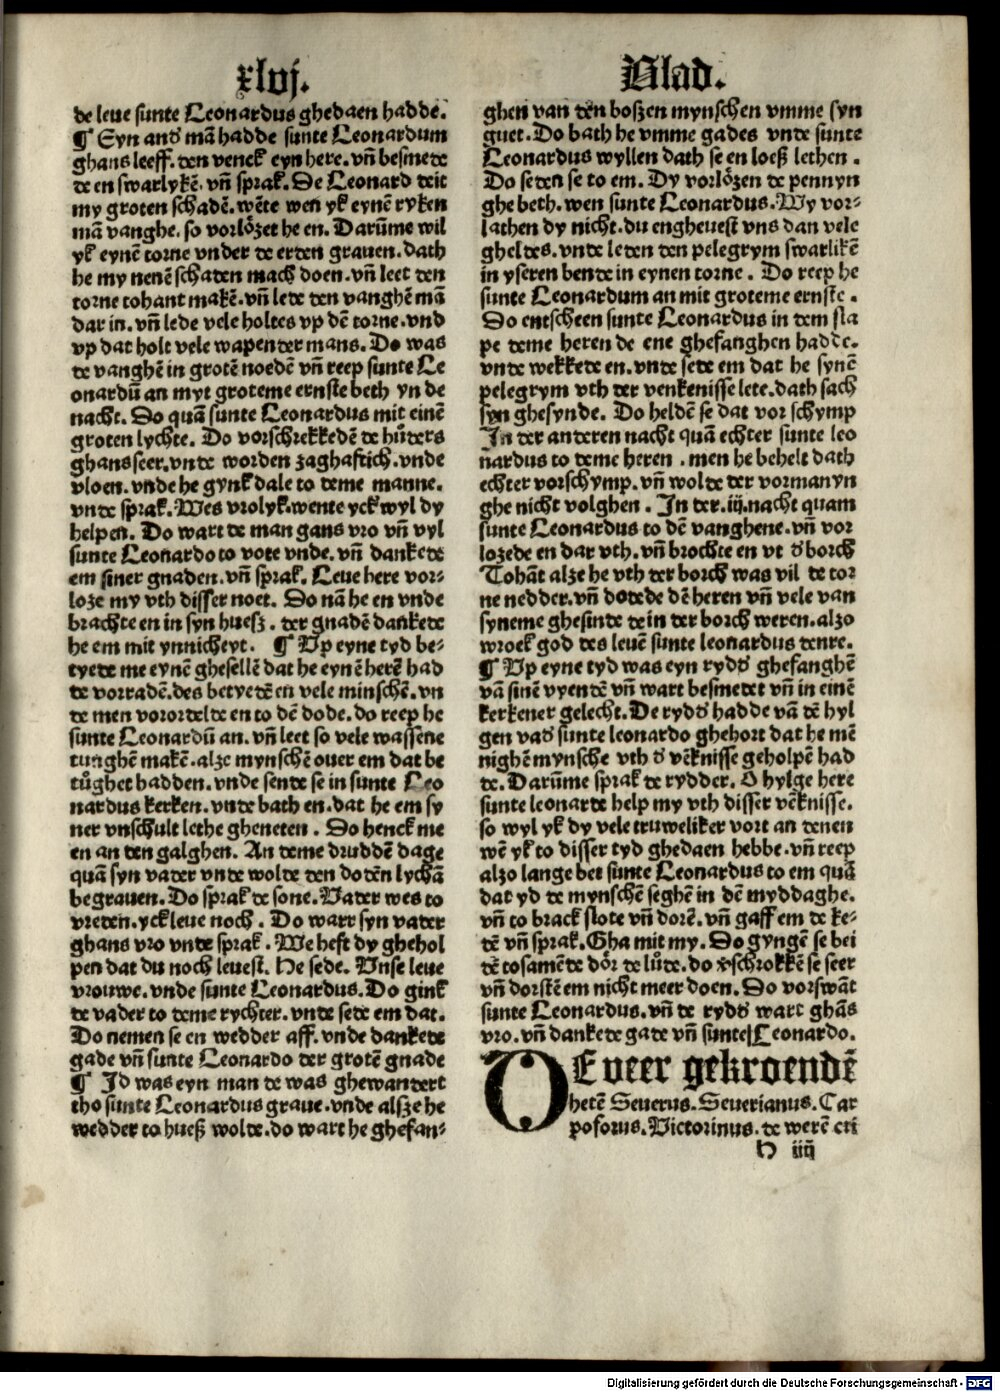 xlvj.
Blad.
de leue sunte Leonardus ghedaen hadde.
¶ Syn and' mā hadde sunte Leonardum
ghans leeff. den venck eyn here. vn̄ besmede
de en swarlykē. vn̄ sprak. De Leonard deit
my groten schadē. wēte wen yk eynē ryken
mā vanghe. so vorlözet he en. Darūme wil
yk eynē torne vnder de erden grauen. dath
he my nenē schaden mach doen. vn̄ leet den
torne tohant makē. vn̄ lede den vanghē mā
dar in. vn̄ lede vele holtes vp dē torne. vnd
vp dat holt vele wapender mans. Do was
de vanghē in grotē noedē vn̄ reep sunte Le
onardū an myt groteme ernste beth yn de
nacht. Do quā sunte Leonardus mit einē
groten lychte. Do vorschrekkedē de hůders
ghans seer. vnde worden zaghaftich. vnde
vloen. vnde he gynk dale to deme manne.
vnde sprak. Wes vrolyk. wente yck wyl dy
helpen. Do wart de man gans vro vn̄ vyl
sunte Leonardo to vote vnde. vn̄ dankede
em siner gnaden. vn̄ sprak. Leue here vor-
loze my vth disser noet. Do nā he en vnde
brachte en in syn huesz. der gnadē dankede
he em mit ynnicheyt. ¶ Vp eyne tyd be-
tyede me eynē ghesellē dat he eynē herē had
de vorradē. des betyedē en vele minschē. vn
de men vorordelde en to dē dode. do reep he
sunte Leonardū an. vn̄ leet so vele wassene
tunghē makē. alze mynschē ouer em dat be
tůghet hadden. vnde sende se in sunte Leo
nardus kerken. vnde bath en. dat he em sy
ner vnschult lethe gheneten. Do henck me
en an den galghen. An deme druddē dage
quā syn vader vnde wolde den dodēn lychā
begrauen. Do sprak de sone. Vader wes to
vreden. yck leue noch. Do wart syn vader
ghans vro vnde sprak. We heft dy ghehol
pen dat du noch leuest. He sede. Vnse leue
vrouwe. vnde sunte Leonardus. Do gink
de vader to deme rychter. vnde sede em dat.
Do nemen se en wedder aff. vnde dankede
gade vn̄ sunte Leonardo der grotē gnade
¶ Jd was eyn man de was ghewandert
tho sunte Leonardus graue. vnde alsze he
wedder to hueß wolde. do wart he ghefan-
ghen van den boßzen mynschen vmme syn
guet. Do bath he vmme gades vnde sunte
Leonardus wyllen dath se en loeß lethen.
Do seden se to em. Dy vorlözen de pennyn
ghe beth. wen sunte Leonardus. Wy vor-
lathen dy nicht. du engheuest vns dan vele
gheldes. vnde leden den pelegrym swarlikē
in yseren bende in eynen torne. Do reep he
sunte Leonardum an mit groteme ernste.
Do entscheen sunte Leonardus in dem sla
pe deme heren de ene ghefanghen hadde.
vnde wekkede en. vnde sede em dat he synē
pelegrym vth der venkenisse lete. dath sach
syn ghesynde. Do heldē se dat vor schymp
In der anderen nacht quā echter sunte leo
nardus to deme heren. men he behelt dath
echter vorschymp. vn̄ wolde der vormanyn
ghe nicht volghen. In der. iij. nacht quam
sunte Leonardus to dē vanghene. vn̄ vor
lozede en dar vth. vn̄ brochte en vt d' borch
Tohāt alze he vth der borch was vil de tor
ne nedder. vn̄ dodede dē heren vn̄ vele van
syneme ghesinde de in der borch weren. alzo
wroek god des leuē sunte leonardus denre.
¶ Vp eyne tyd was eyn ryd' ghefanghē
vā sinē vyendē vn̄ wart besmedet vn̄ in einē
kerkener gelecht. De ryd' hadde vā dē hyl
gen vad' sunte leonardo ghehort dat he mē
nighē mynsche vth d' vēknisse geholpē had
de. Darūme sprak de rydder. O hylge here
sunte leonarde help my vth disser vēknisse.
so wyl yk dy vele truweliker vort an denen
wē yk to disser tyd ghedaen hebbe. vn̄ reep
alzo lange bet sunte Leonardus to em quā
dat yd de mynschē seghē in dē myddaghe.
vn̄ to brack slote vn̄ dorē. vn̄ gaff em de ke-
dē vn̄ sprak. Gha mit my. Do gyngē se bei
dē tosamēde dör de lůde. do v'schrokkē se seer
vn̄ dorstē em nicht meer doen. Do vorswāt
sunte Leonardus. vn̄ de ryd' wart ghās
vro. vn̄ dankede gade vn̄ sunte Leonardo.
DE veer gekroendē
hetē Seuerus. Seuerianus. Car
poforus. Victorinus. de werē cri
h iiij
Digitalisierung gefördert durch die Deutsche Forschungsgemeinschaft - DFG